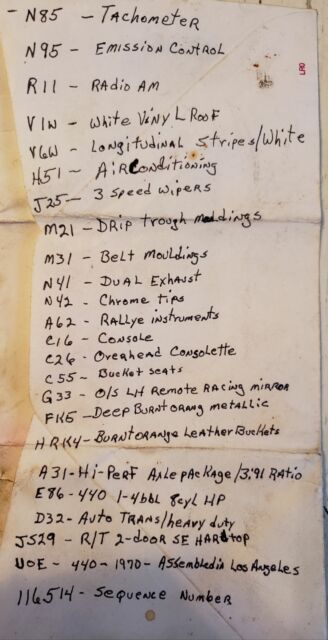 - N85 - Tachometer
N95 - Emission Control
R11 - Radio AM
V1W - White Vinyl Roof
V6W - Longitudinal Stripes/White
H51 - Air Conditioning
J25 - 3 Speed Wipers
M21 - Drip trough moldings
M31 - Belt Mouldings
N41 - Dual Exhaust
N42 - Chrome tips
A62 - Rallye instruments
C16 - Console
C26 - Overhead Consolette
C55 - Bucket seats
G33 - O/S LH Remote Racing mirror
FK5 - Deep Burnt orang metallic
HRK4 - Burnt orange Leather Buckets
A31 - Hi-Perf Axle package/3.91 Ratio
E86 - 440 1-4bbl 8cyl HP
D32 - Auto Trans/heavy duty
JS29 - R/T 2-door SE Hardtop
UOE - 440 - 1970 - Assembled in Los Angeles
116514 - Sequence Number